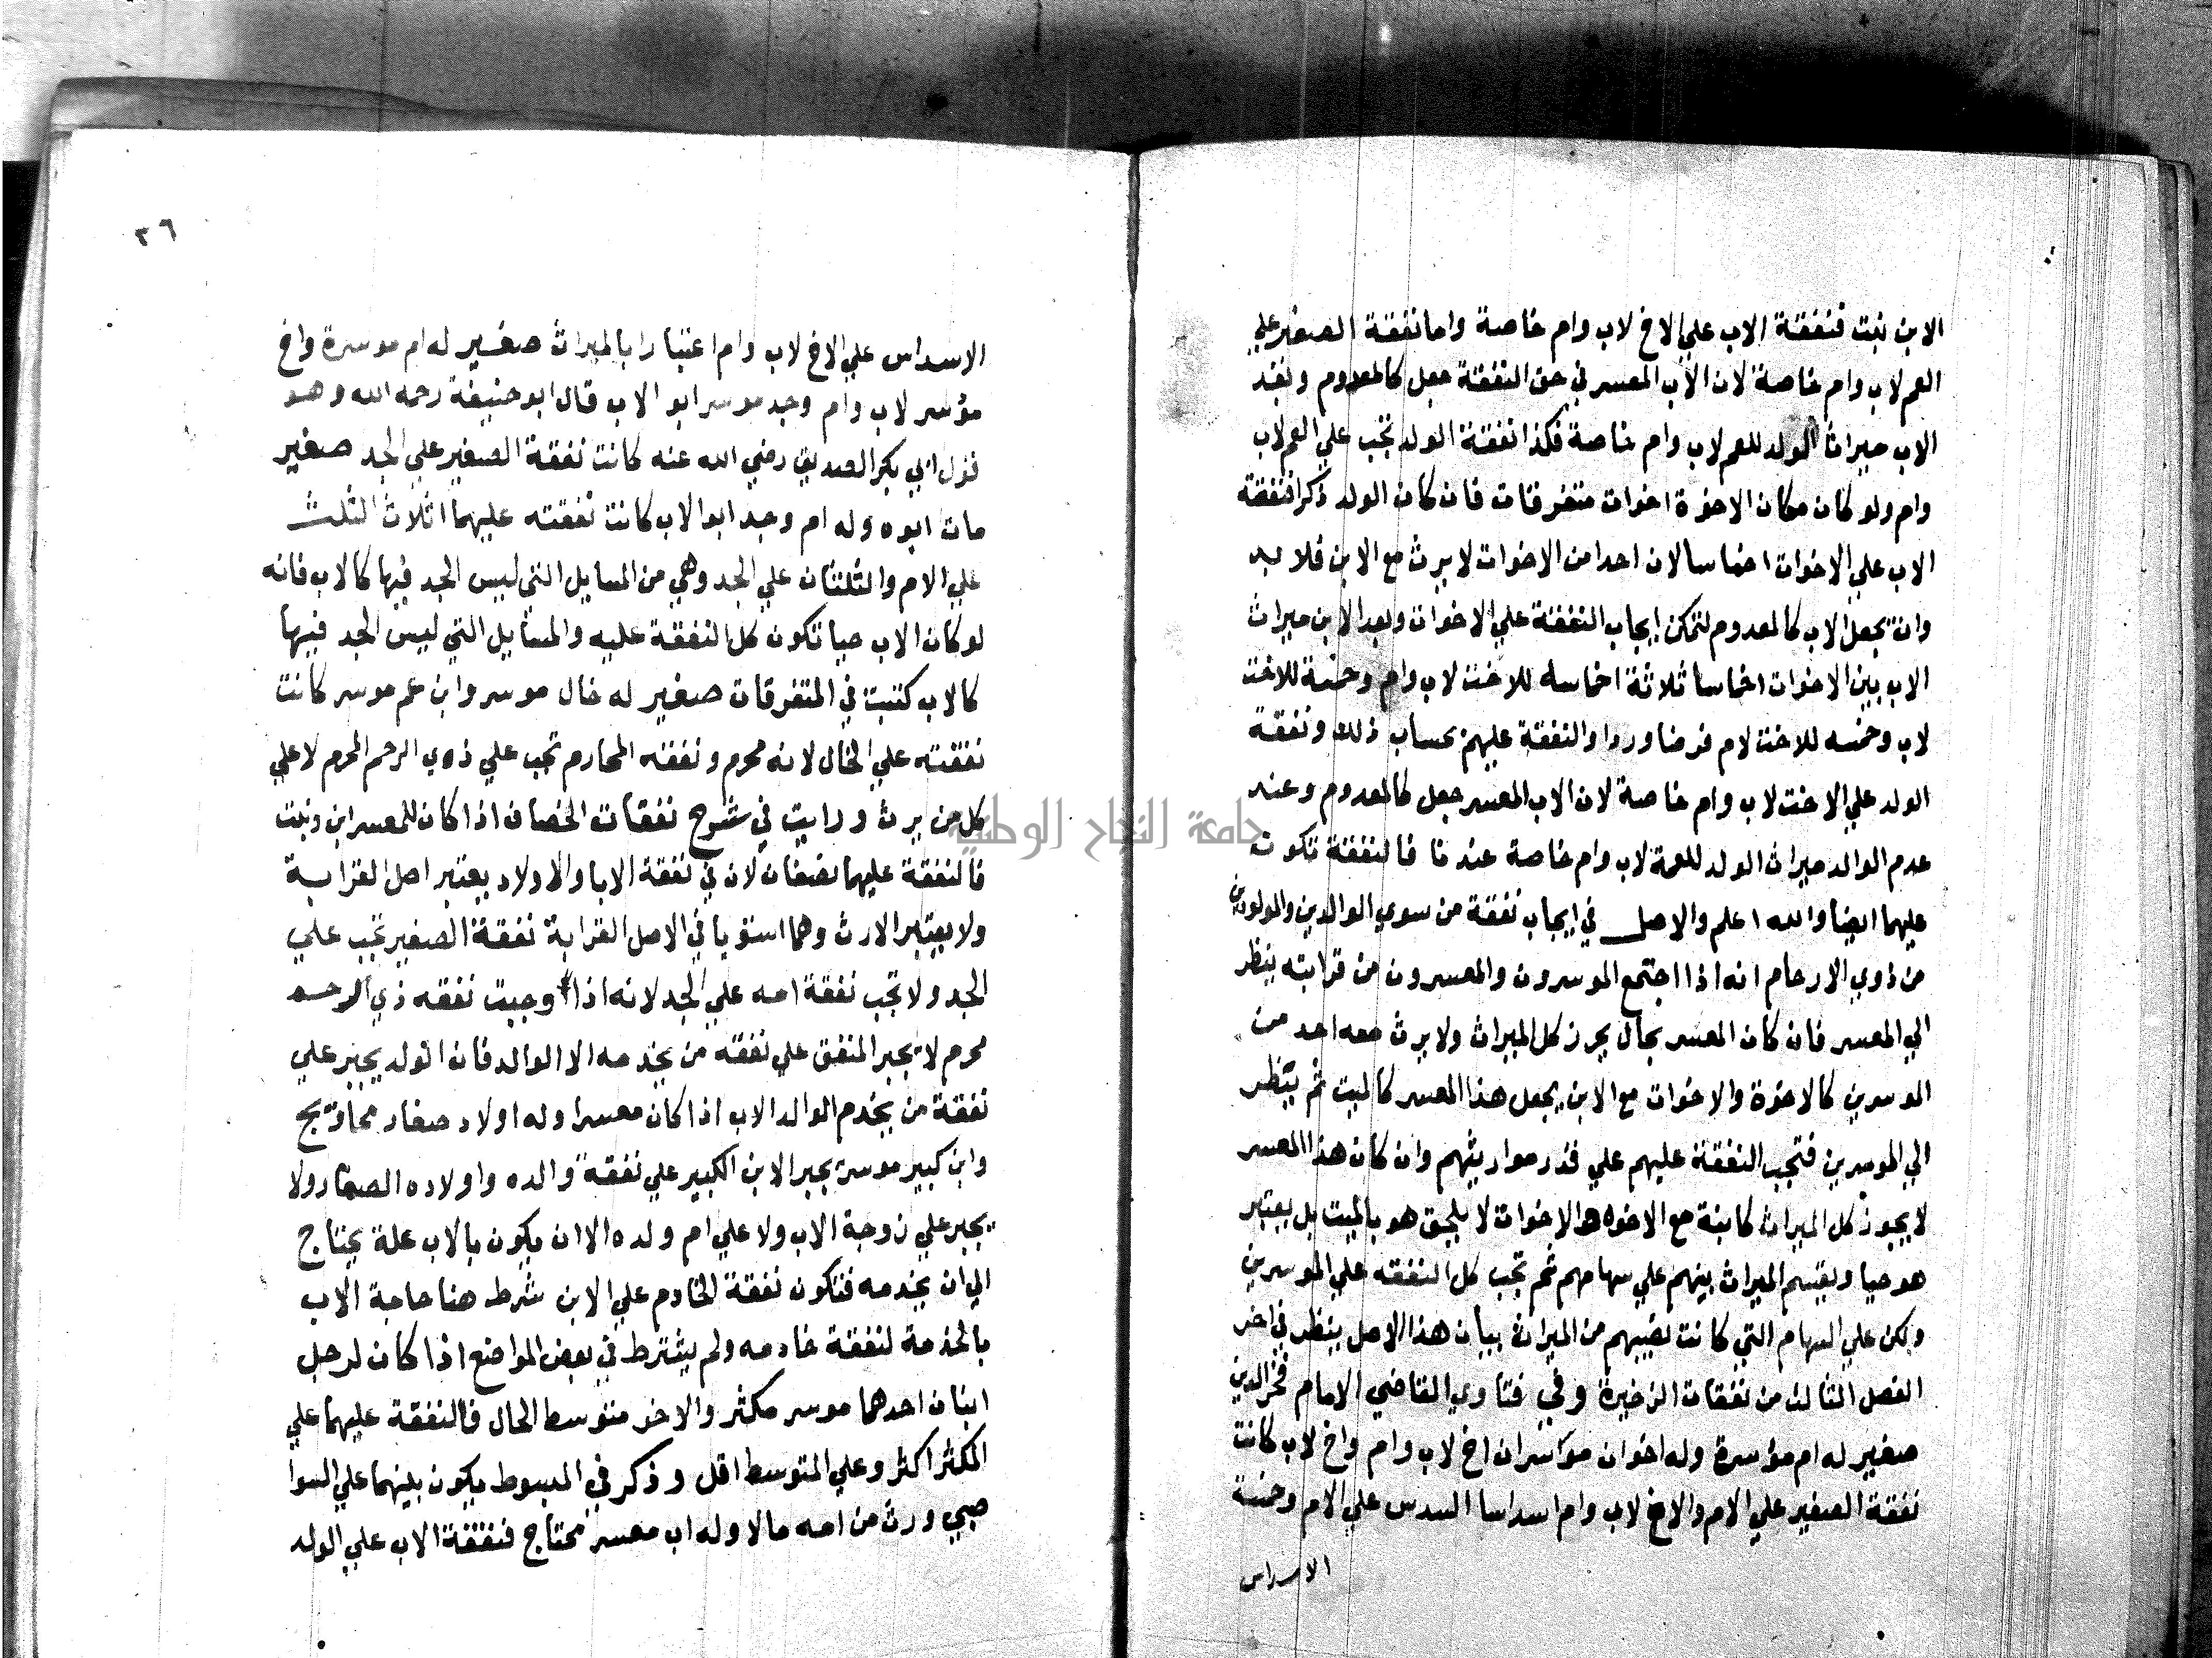 الابن بنت فنفقة الاب علي الاخ لاب وام خاصة واما نفقة الصغير علي
العم لاب وام خاصة لان الاب المعسر في حق النفقة جعل كالمعدوم وبعد
الاب ميراث الولد للعم لاب وام خاصة فكذا نفقة الولد تجب علي العم لاب
وام ولو كان مكان الاخوة اخوات متفرقات فان كان الولد ذكرا فنفقة
الاب علي الاخوات اخماسا لان احدا من الاخوات لا يرث مع الابن فلا بد
وان يجعل الاب كالمعدوم لتمكن ايجاب النفقة علي الاخوات وبعد الابن ميراث
الاب بين الاخوات اخماسا ثلاثة اخماسه للاخت لاب وام وخمسة للاخت
لاب وخمسه للاخت لام فرضا وردا والنفقة عليهن بحساب ذلك ونفقة
الولد علي الاخت لاب وام خاصة لان الاب المعسر جعل كالمعدوم وعند
عدم الوالد ميراث الولد للعمة لاب وام خاصة عندنا فالنفقة تكون
عليهما ايضا والله اعلم والاصل في ايجاب نفقة من سوي الوالدين والمولودين
من ذوي الارحام انه اذا اجتمع الموسرون والمعسرون من قرابته ينظر
الي المعسر فان كان المعسر بحال يحرز كل الميراث ولا يرث معه احد من
الموسرين كالاخوة والاخوات مع الابن يجعل هذا المعسر كالميت ثم ينظر
الي الموسرين فتجب النفقة عليهم علي قدر مواريثهم وان كان هذا المعسر
لا يجوز كل الميراث كابنة مع الاخوه والاخوات لا يلحق هو بالميت بل يعتبر
هو حيا ويقسم الميراث بينهم علي سهامهم ثم تجب كل النفقه علي الموسرين
ولكن علي السهام التي كانت نصيبهم من الميراث بيان هذا الاصل ينظر في اخر
الفصل الثالث من نفقات الذخيرة وفي فتاوي القاضي الامام فخر الدين
صغير له ام مؤسرة وله اخوان مؤسران اخ لاب وام واخ لاب كانت
نفقة الصغير علي الام والاخ لاب وام اسداسا السدس علي الام وخمسة
الاسداس
٣٦
الاسداس علي الاخ لاب وام اعتبارا بالميراث صغير له ام موسرة واخ
مؤسر لاب وام وجد موسر ابو الاب قال ابو حنيفة رحمه الله وهو
قول ابي بكر الصديق رضي الله عنه كانت نفقة الصغير علي الجد صغير
مات ابوه وله ام وجد ابو الاب كانت نفقته عليهما اثلاث الثلث
علي الام والثلثان علي الجد وهي من المسايل التي ليس الجد فيها كالاب فانه
لو كان الاب حيا تكون كل النفقة عليه والمسايل التي ليس الجد فيها
كالاب كتبت في المتفرقات صغير له خال موسر وابن عم موسر كانت
نفقته علي الخال لانه محرم ونفقه المحارم تجب علي ذوي الرحم المحرم لا علي
كل من يرث ورايت في شرح نفقات الخصاف اذا كان للمعسر ابن وبنت
فالنفقة عليهما نصفان لان في نفقة الابا والاولاد يعتبر اصل القرابة
ولا يعتبر الارث وهما استويا في الاصل القرابة نفقة الصغير تجب علي
الجد ولا تجب نفقة امه علي الجد لانه اذا وجبت نفقه ذي الرحم
محرم لا يجبر المنفق علي نفقه من يخدمه الا الوالد فان الولد يجبر علي
نفقة من يخدم الوالد الاب اذا كان معسرا وله اولاد صغار محاويج
وابن كبير موسر يجبر الابن الكبير علي نفقة والده واولاده الصغار ولا
يجبر علي زوجة الاب ولا علي ام ولده الا ان يكون بالاب علة يحتاج
الي ان يخدمه فتكون نفقة الخادم علي الابن شرط هنا حاجة الاب
بالخدمة لنفقة خادمه ولم يشترط في بعض المواضع اذا كان لرجل
ابنان احدهما موسر مكثر والاخر متوسط الحال فالنفقة عليهما علي
المكثر اكثر وعلي المتوسط اقل وذكر في المبسوط يكون بينهما علي السوا
صبي ورث من امه مالا وله اب معسر محتاج فنفقة الاب علي الولد
جامعة النجاح الوطنية